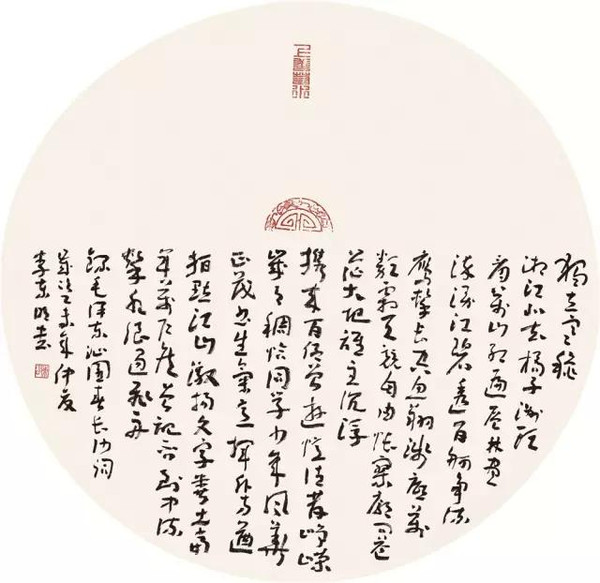 獨立寒秋
湘江北去橘子洲頭
看萬山紅遍層林盡
染漫江碧透百舸爭流
鷹擊長空魚翔淺底萬
類霜天競自由悵寥廓問蒼
茫大地誰主沉浮
攜來百侶曾遊憶往昔崢嶸
歲月稠恰同學少年風華
正茂書生氣意揮斥方遒
指點江山激揚文字糞土當
年萬戶侯曾記否到中流
擊水浪遏飛舟
錄毛澤東沁園春長沙詞
歲次乙未年仲夏
李東明書